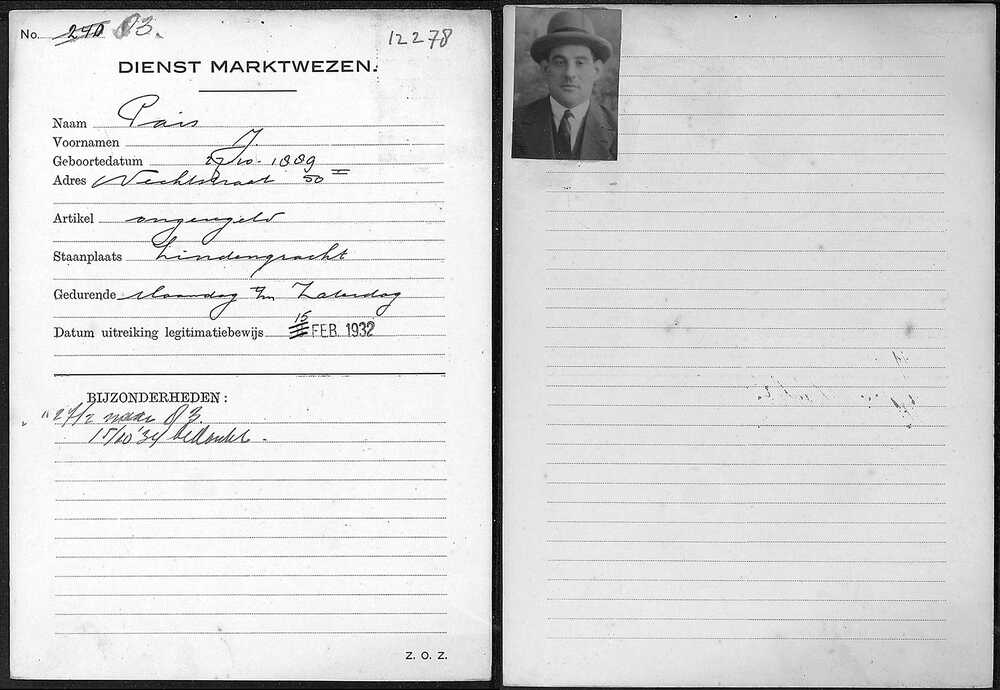 No. 270 83.
12278
DIENST MARKTWEZEN.
Naam Pais
Voornamen J.
Geboortedatum 27/10-1889
Adres Vechtstraat 50 II
Artikel ongeregeld
Staanplaats Lindengracht
Gedurende Maandag t/m Zaterdag
Datum uitreiking legitimatiebewijs 15 FEB. 1932
BIJZONDERHEDEN:
27/2 naar 83.
15/10 '34 bedankt.
Z. O. Z.